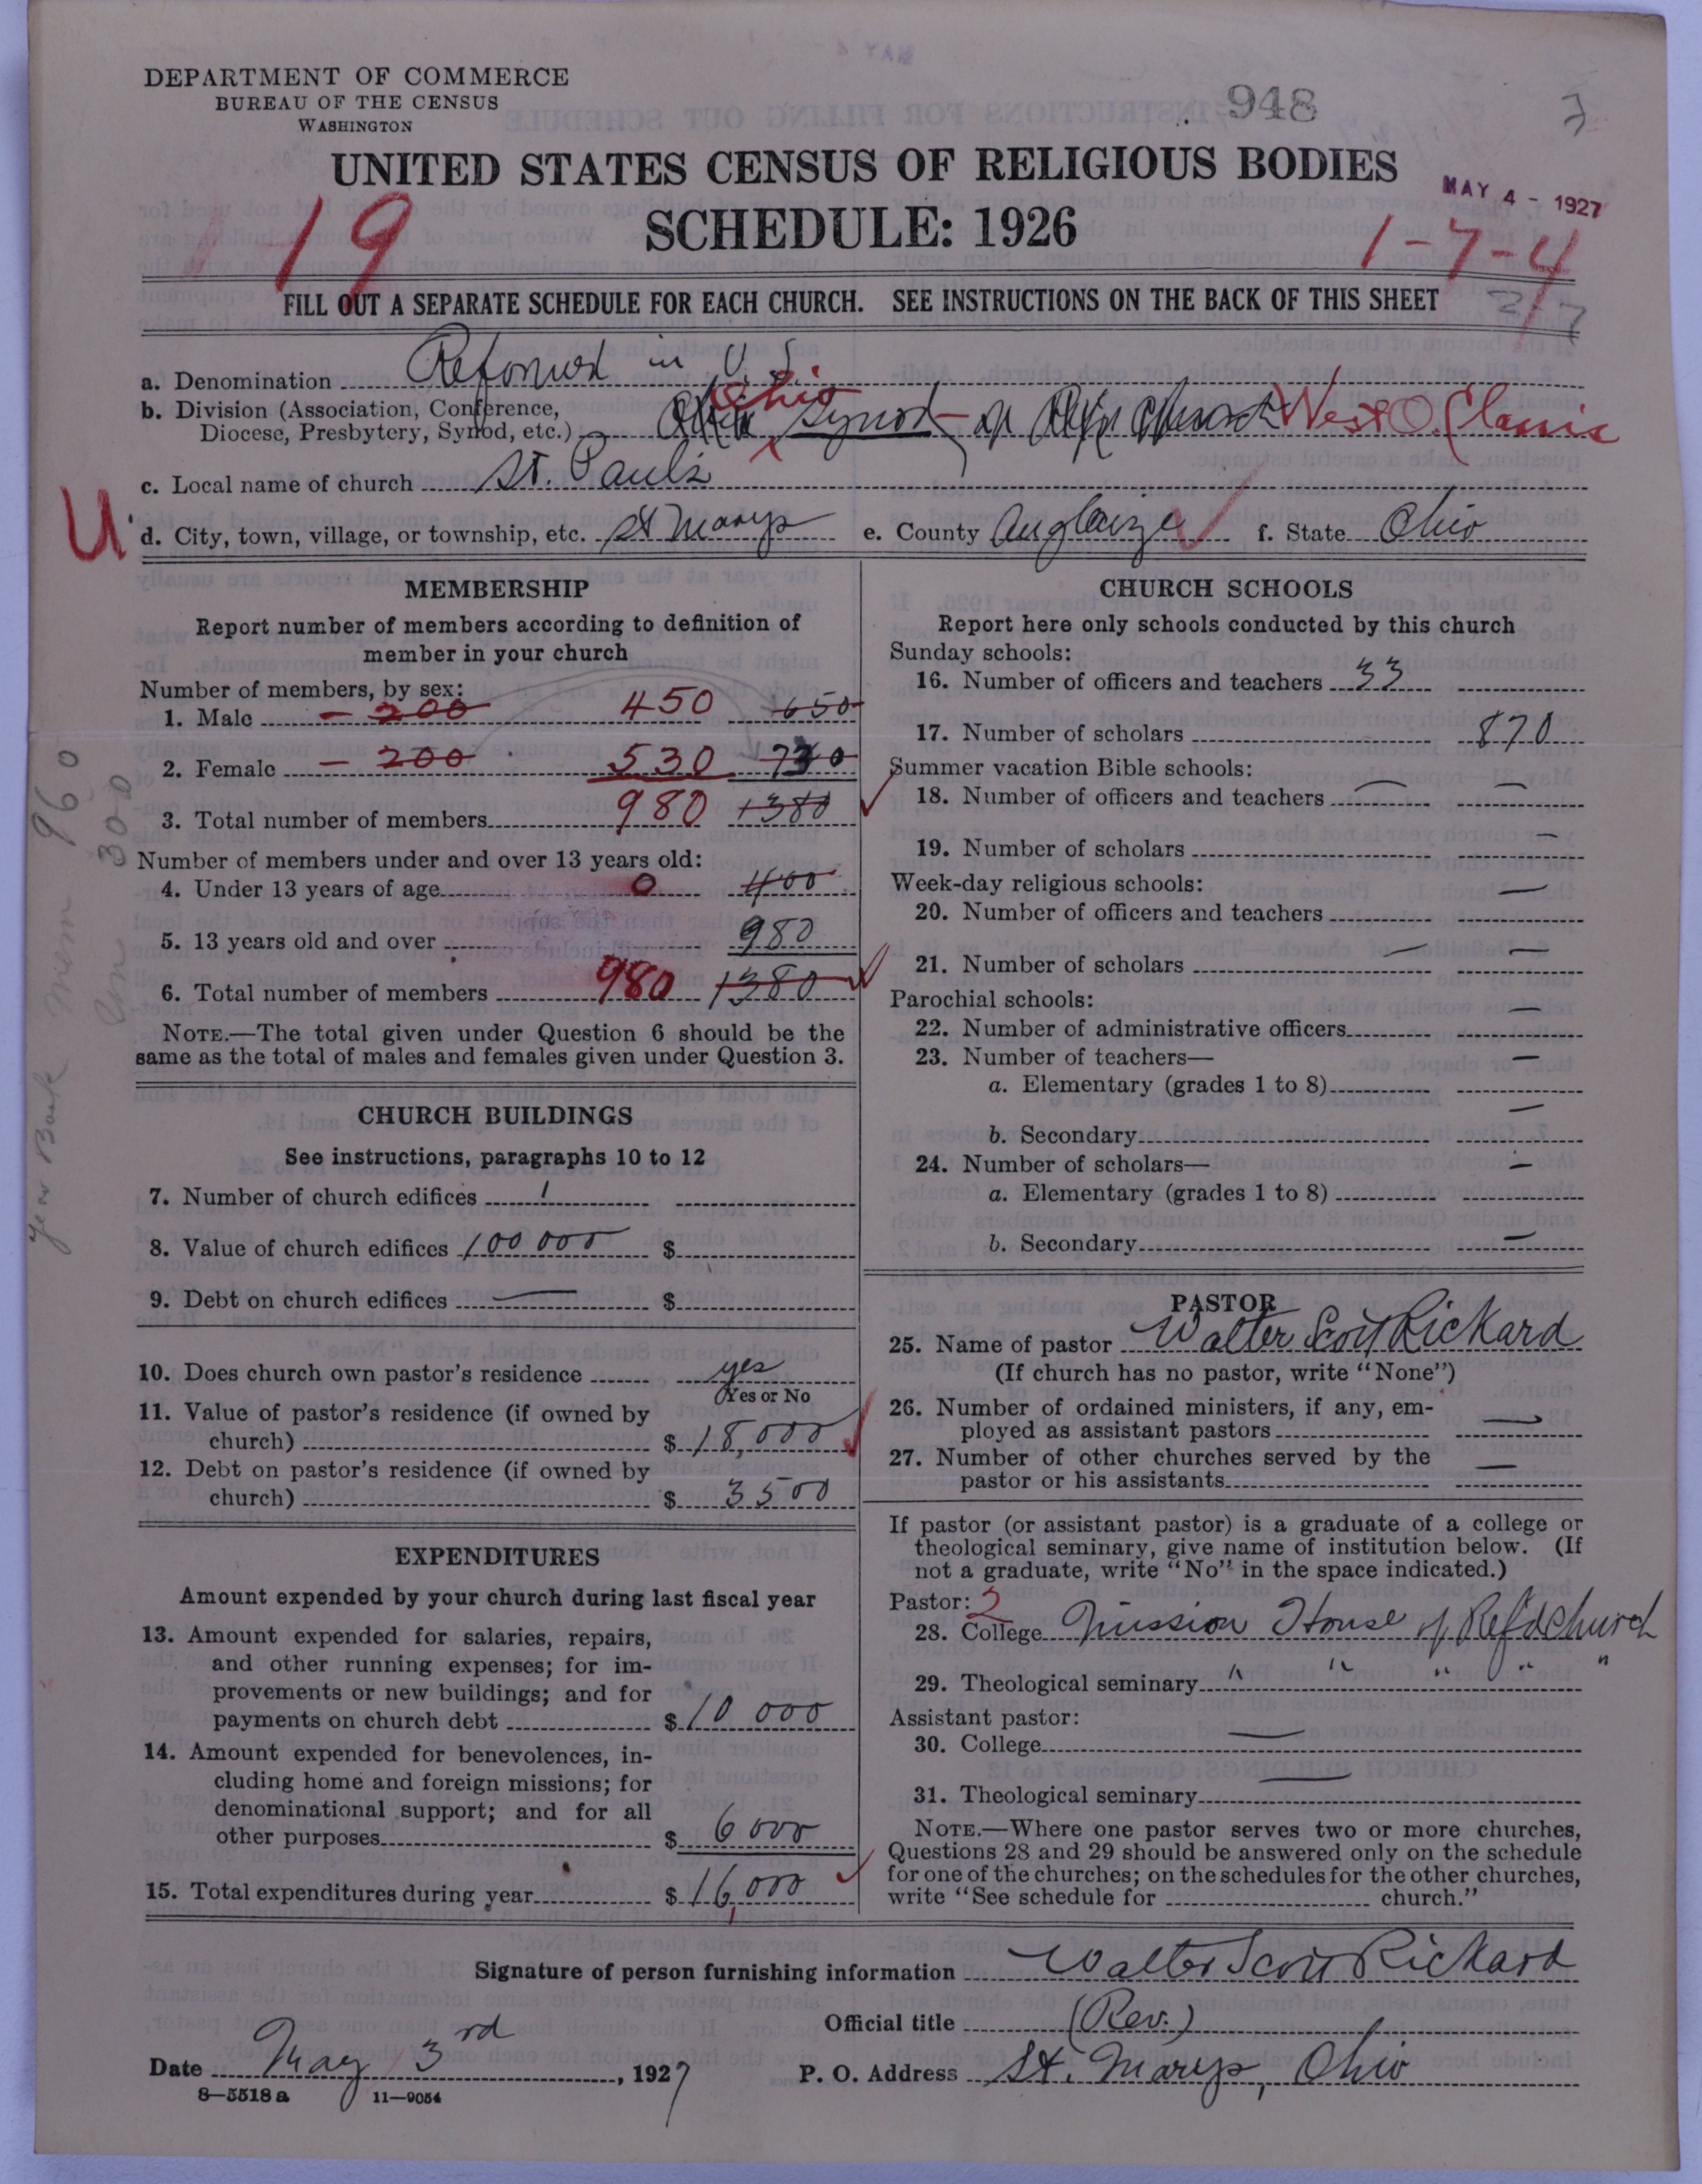 DEPARTMENT OF COMMERCE
BUREAU OF THE CENSUS
WASHINGTON
948
UNITED STATES CENSUS OF RELIGIOUS BODIES
SCHEDULE: 1926
MAY 4 - 1927
19
1-7-4
FILL OUT A SEPARATE SCHEDULE FOR EACH CHURCH. SEE INSTRUCTIONS ON THE BACK OF THIS SHEET
a. Denomination Reformed in U. S.
b. Division (Association, Conference, Diocese, Presbytery, Synod, etc.) Ohio Synod of Ref Church West O. Classis
c. Local name of church St. Paul's
U
d. City, town, village, or township, etc. St Marys e. County Auglaize f. State Ohio
MEMBERSHIP
Report number of members according to definition of
member in your church
Number of members, by sex:
1. Male - 200 450 650
2. Female - 200 530 730
3. Total number of members 980 1380
Number of members under and over 13 years old:
4. Under 13 years of age 0 400
5. 13 years old and over 980
6. Total number of members 980 1380
NOTE.—The total given under Question 6 should be the
same as the total of males and females given under Question 3.
Year Book Mem 960
300
CHURCH BUILDINGS
See instructions, paragraphs 10 to 12
7. Number of church edifices 1
8. Value of church edifices 100 000 $
9. Debt on church edifices — $
10. Does church own pastor's residence yes
Yes or No
11. Value of pastor's residence (if owned by
church) $ 18,000
12. Debt on pastor's residence (if owned by
church) $ 3500
EXPENDITURES
Amount expended by your church during last fiscal year
13. Amount expended for salaries, repairs,
and other running expenses; for im-
provements or new buildings; and for
payments on church debt $ 10 000
14. Amount expended for benevolences, in-
cluding home and foreign missions; for
denominational support; and for all
other purposes $ 6 000
15. Total expenditures during year $ 16,000
CHURCH SCHOOLS
Report here only schools conducted by this church
Sunday schools:
16. Number of officers and teachers 33
17. Number of scholars 870
Summer vacation Bible schools:
18. Number of officers and teachers — —
19. Number of scholars —
Week-day religious schools:
20. Number of officers and teachers —
21. Number of scholars — —
Parochial schools:
22. Number of administrative officers —
23. Number of teachers—
a. Elementary (grades 1 to 8) —
b. Secondary —
24. Number of scholars—
a. Elementary (grades 1 to 8) —
b. Secondary —
PASTOR
25. Name of pastor Walter Scott Rickard
(If church has no pastor, write "None")
26. Number of ordained ministers, if any, em-
ployed as assistant pastors —
27. Number of other churches served by the
pastor or his assistants —
If pastor (or assistant pastor) is a graduate of a college or
theological seminary, give name of institution below. (If
not a graduate, write "No" in the space indicated.)
Pastor: 2
28. College Mission House of Ref'd Church
29. Theological seminary " " " " "
Assistant pastor:
30. College —
31. Theological seminary —
NOTE.—Where one pastor serves two or more churches,
Questions 28 and 29 should be answered only on the schedule
for one of the churches; on the schedules for the other churches,
write "See schedule for church."
Signature of person furnishing information Walter Scott Rickard
Official title (Rev.)
Date May 3rd, 1927 P. O. Address St. Marys, Ohio
8—5518 a 11—9054